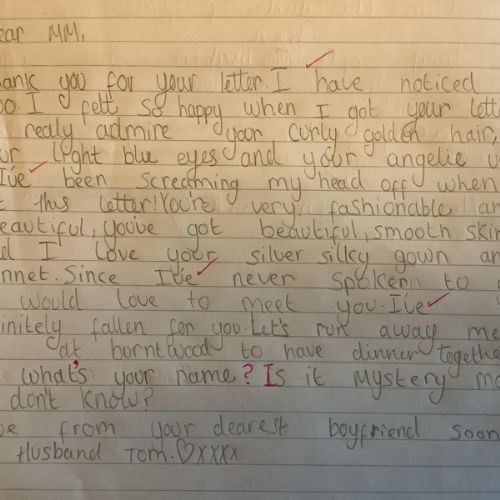 ear MM,
hank you for your letter. I have noticed
oo. I felt so happy when I got your lette
realy admire your curly golden hair,
ur light blue eyes and your angelic v
I've been screaming my head off when
t this letter! You're very fashionable an
eautiful, you've got beautiful, smooth skin
d I love your silver silky gown an
nnet. Since I've never spokern to
would love to meet you. I've
initely fallen for you. Let's run away me
at burntwood to have dinner togethe
what's your name? Is it mystery ma
don't know?
ve from your dearest boyfriend soon
Husband Tom. ♡xxxx